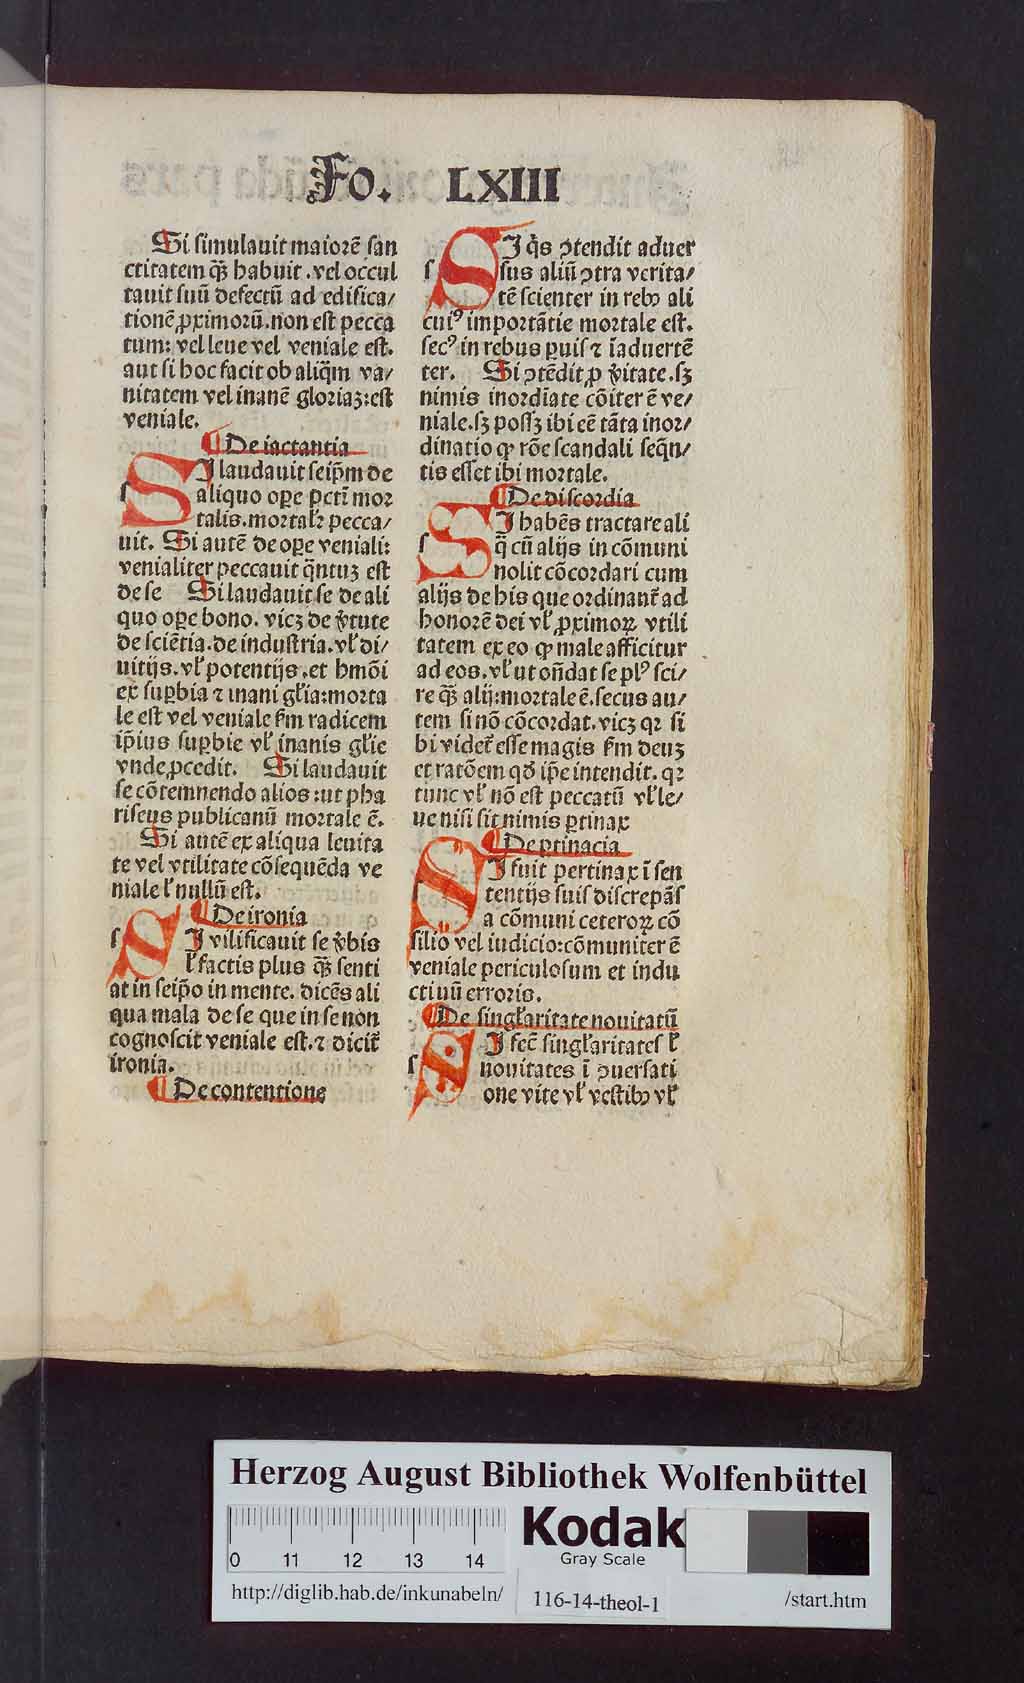 Fo. LXIII
Si simulauit maiorē san
ctitatem qȝ̄ habuit . vel occul
tauit suū defectū ad edifica/
tionē ꝓximorū . non est pecca
tum: vel leue vel veniale est.
aut si hoc facit ob aliq̄m va/
nitatem vel inanē gloriaȝ: est
veniale.
¶ De iactantia
SI laudauit seip̄m de
aliquo oꝑe pctī mor
talis . mortalr̄ pecca/
uit. Si autē de oꝑe veniali:
venialiter peccauit q̄ntuȝ est
de se Si laudauit se de ali
quo oꝑe bono . vicȝ de v̄tute
de sciētia . de industria . vl̄ di/
uitijs . vl̄ potentijs . et hmōi
ex suꝑbia ⁊ inani gl̄ia: morta
le est vel veniale ẜm radicem
ip̄ius suꝑbie vl̄ inanis gl̄ie
vnde ꝓcedit. Si laudauit
se cōtemnendo alios : ut pha
riseus publicanū mortale ē.
Si autē ex aliqua leuita
te vel vtilitate cōsequēda ve
niale l̄ nullū est.
¶ De ironia
SI vilificauit se v̄bis
l̄ factis plus qȝ̄ senti
at in seip̄o in mente. dicēs ali
qua mala de se que in se non
cognoscit veniale est . ⁊ dicit̄
ironia.
¶ De contentione
SI q̄s ꝯtendit aduer
sus aliū ꝯtra verita/
tē scienter in rebꝰ ali
cuiꝰ importātie mortale est.
secꝰ in rebus ꝑuis ⁊ īaduertē
ter. Si ꝯtēdit ꝓ v̄itate . sȝ
nimis inordīate cōiter ē ve/
niale . sȝ possȝ ibi eē tāta inor/
dinatio ꝙ rōe scandali seqn̄/
tis esset ibi mortale.
¶ De discordia
SI habēs tractare ali
q̄ cū alijs in cōmuni
nolit cōcordari cum
alijs de his que ordinant̄ ad
honorē dei vl̄ ꝓximoꝝ vtili
tatem ex eo ꝙ male afficitur
ad eos . vl̄ ut oñdat se plꝰ sci/
re qȝ̄ alij: mortale ē . secus au/
tem si nō cōcordat . vicȝ qꝛ si
bi videt̄ esse magis ẜm deuȝ
et ratōem qd̄ ip̄e intendit . qꝛ
tunc vl̄ nō est peccatū vl̄ le/
ue nisi sit nimis ꝑtinax
¶ De ꝑtinacia
SI fuit pertinax ī sen
tentijs suis discrepās
a cōmuni ceteroꝝ cō
silio vel iudicio: cōmuniter ē
veniale periculosum et indu
ctiuū erroris.
¶ De singl̄aritate nouitatū
SI fec̄ singl̄aritates l̄
nouitates ī ꝯuersati
one vite vl̄ vestibꝰ vl̄
Herzog August Bibliothek Wolfenbüttel
0 11 12 13 14
Kodak
Gray Scale
http://diglib.hab.de/inkunabeln/
116-14-theol-1
/start.htm